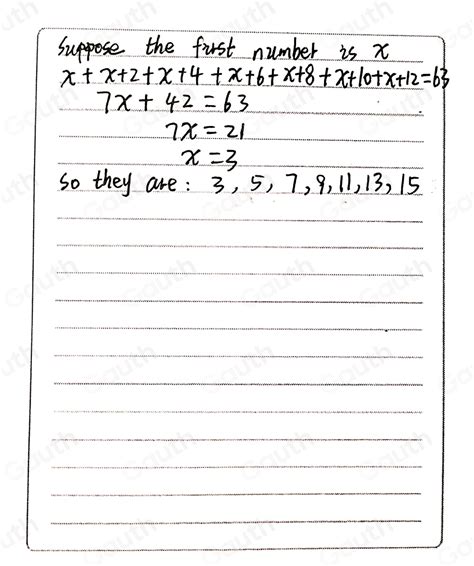 Suppose the first number is x
x + x+2 + x+4 + x+6 + x+8 + x+10 + x+12 = 63
7x + 42 = 63
7x = 21
x = 3
So they are : 3, 5, 7, 9, 11, 13, 15
Gauth